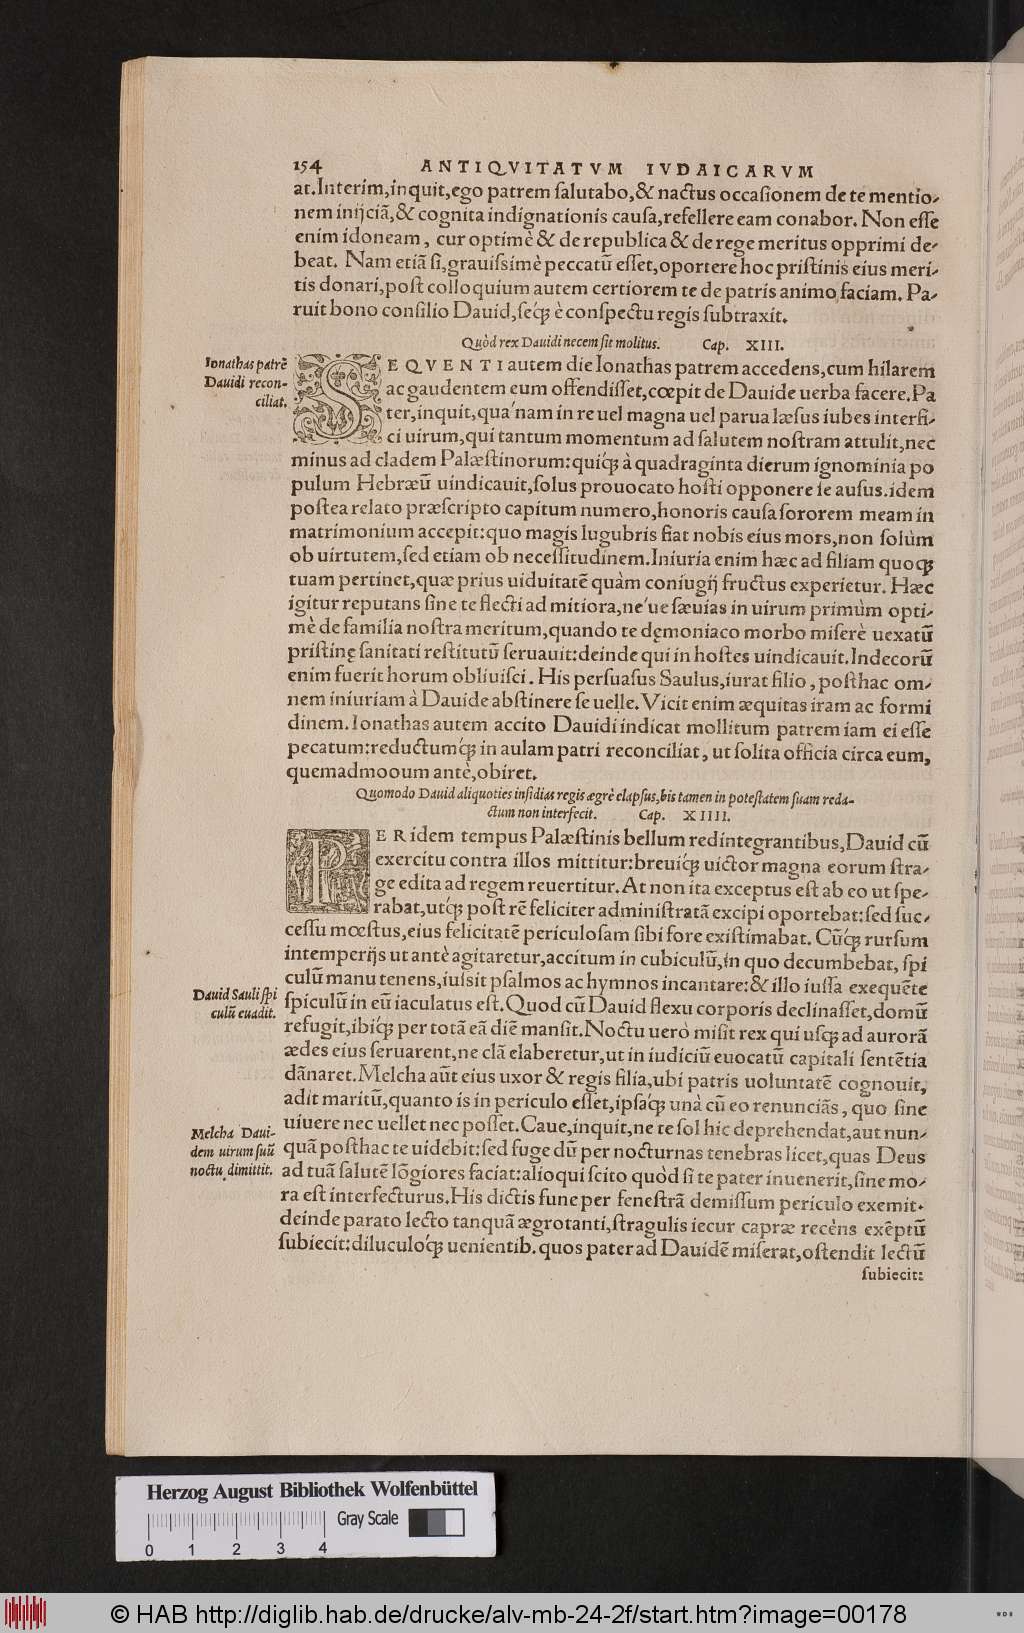 154 ANTIQVITATVM IVDAICARVM
at. Interim, inquit, ego patrem ſalutabo, & nactus occaſionem de te mentio-
nem inijciã, & cognita indignationis cauſa, refellere eam conabor. Non eſſe
enim idoneam, cur optimè & de republica & de rege meritus opprimi de-
beat. Nam etiã ſi, grauiſsimè peccatũ eſſet, oportere hoc priſtinis eius meri-
tis donari, poſt colloquium autem certiorem te de patris animo faciam. Pa-
ruit bono conſilio Dauid, ſeq́ꝫ è conſpectu regis ſubtraxit.
Quòd rex Dauidi necem ſit molitus. Cap. XIII.
Ionathas patrẽ
Dauidi recon-
ciliat.
SEQVENTI autem die Ionathas patrem accedens, cum hilarem
ac gaudentem eum offendiſſet, cœpit de Dauide uerba facere. Pa
ter, inquit, qua nam in re uel magna uel parua læſus iubes interfi-
ci uirum, qui tantum momentum ad ſalutem noſtram attulit, nec
minus ad cladem Palæſtinorum: quiq́ꝫ à quadraginta dierum ignominia po
pulum Hebræũ uindicauit, ſolus prouocato hoſti opponere ſe auſus. idem
poſtea relato præſcripto capitum numero, honoris cauſa ſororem meam in
matrimonium accepit: quo magis lugubris fiat nobis eius mors, non ſolùm
ob uirtutem, ſed etiam ob neceſsitudinem. Iniuria enim hæc ad filiam quoqꝫ
tuam pertinet, quæ prius uiduitatẽ quàm coniugij fructus experietur. Hæc
igitur reputans ſine te flecti ad mitiora, ne ue ſæuias in uirum primùm opti-
mè de familia noſtra meritum, quando te dęmoniaco morbo miſerè uexatũ
priſtinę ſanitati reſtitutũ ſeruauit: deinde qui in hoſtes uindicauit. Indecorũ
enim fuerit horum obliuiſci. His perſuaſus Saulus, iurat filio, poſthac om-
nem iniuriam à Dauide abſtinere ſe uelle. Vicit enim æquitas iram ac formi
dinem. Ionathas autem accito Dauidi indicat mollitum patrem iam ei eſſe
pecatum: reductumq́ꝫ in aulam patri reconciliat, ut ſolita officia circa eum,
quemadmooum antè, obiret.
Quomodo Dauid aliquoties inſidias regis ægrè elapſus, bis tamen in poteſtatem ſuam reda-
ctum non interfecit. Cap. XIIII.
PER idem tempus Palæſtinis bellum redintegrantibus, Dauid cũ
exercitu contra illos mittitur: breuiq́ꝫ uictor magna eorum ſtra-
ge edita ad regem reuertitur. At non ita exceptus eſt ab eo ut ſpe-
rabat, utq́ꝫ poſt rẽ feliciter adminiſtratã excipi oportebat: ſed ſuc-
ceſſu mœſtus, eius felicitatẽ periculoſam ſibi fore exiſtimabat. Cũq́ꝫ rurſum
intemperijs ut antè agitaretur, accitum in cubiculũ, in quo decumbebat, ſpi
culũ manu tenens, iuſsit pſalmos ac hymnos incantare: & illo iuſſa exequẽte
Dauid Sauli ſpi
culũ euadit.
ſpiculũ in eũ iaculatus eſt. Quod cũ Dauid flexu corporis declinaſſet, domũ
refugit, ibiq́ꝫ per totã eã diẽ manſit. Noctu uerò miſit rex qui uſqꝫ ad aurorã
ædes eius ſeruarent, ne clã elaberetur, ut in iudiciũ euocatũ capitali ſentẽtia
dãnaret. Melcha aũt eius uxor & regis filia, ubi patris uoluntatẽ cognouit,
adit maritũ, quanto is in periculo eſſet, ipſaq́ꝫ unà cũ eo renunciãs, quo ſine
uiuere nec uellet nec poſſet. Caue, inquit, ne te ſol hic deprehendat, aut nun-
Melcha Daui-
dem uirum ſuũ
noctu dimittit.
quã poſthac te uidebit: ſed fuge dũ per nocturnas tenebras licet, quas Deus
ad tuã ſalutẽ lõgiores faciat: alioqui ſcito quòd ſi te pater inuenerit, ſine mo-
ra eſt interfecturus. His dictis fune per feneſtrã demiſſum periculo exemit.
deinde parato lecto tanquã ægrotanti, ſtragulis iecur capræ recèns exẽptũ
ſubiecit: diluculoq́ꝫ uenientib. quos pater ad Dauidẽ miſerat, oſtendit lectũ
ſubiecit:
Herzog August Bibliothek Wolfenbüttel
Gray Scale
0 1 2 3 4
© HAB http://diglib.hab.de/drucke/alv-mb-24-2f/start.htm?image=00178